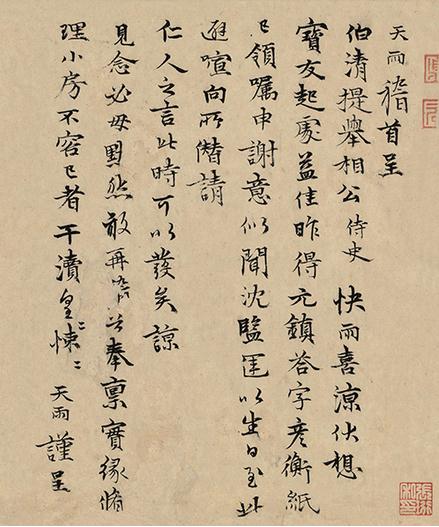 天雨稽首呈
伯清提舉相公侍史 快雨喜涼伏想
寶友起處益佳昨得元鎮荅字彥衡紙
已領囑申謝意似聞沈監匡以生日至此
避喧向所僭請
仁人之言此時可以發矣諒
見念必毋默然敢再稽首奉稟寶緣脩
理小房不容已者干瀆皇〻悚〻 天雨謹呈
張珩私印